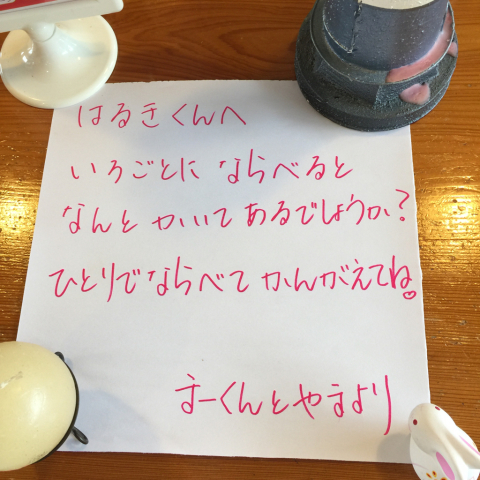 はるきくんへ
いろごとに ならべると
なんと かいて あるでしょうか?
ひとりでならべて かんがえてね♡
まーくんとやまより